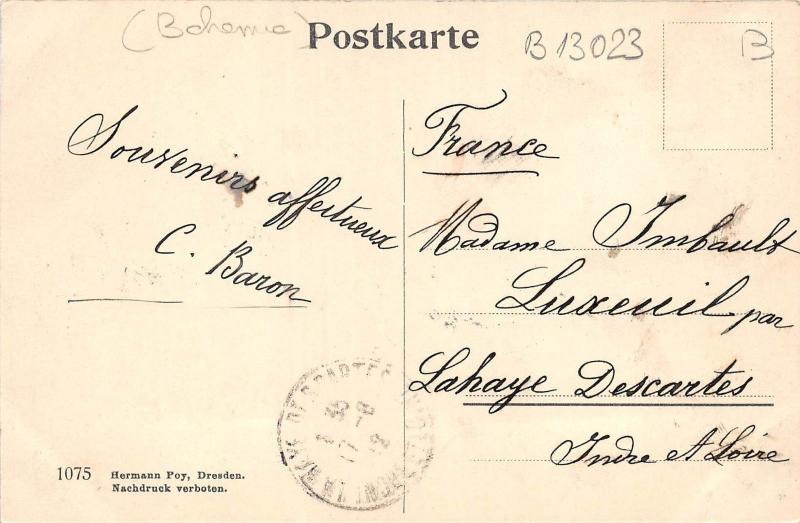 (Boheme)
Postkarte
B 13023
B
Souvenirs affectueux
C. Baron
France
Madame Imbault
Luxeuil par
Lahaye Descartes
Indre et Loire
1075 Hermann Poy, Dresden.
Nachdruck verboten.